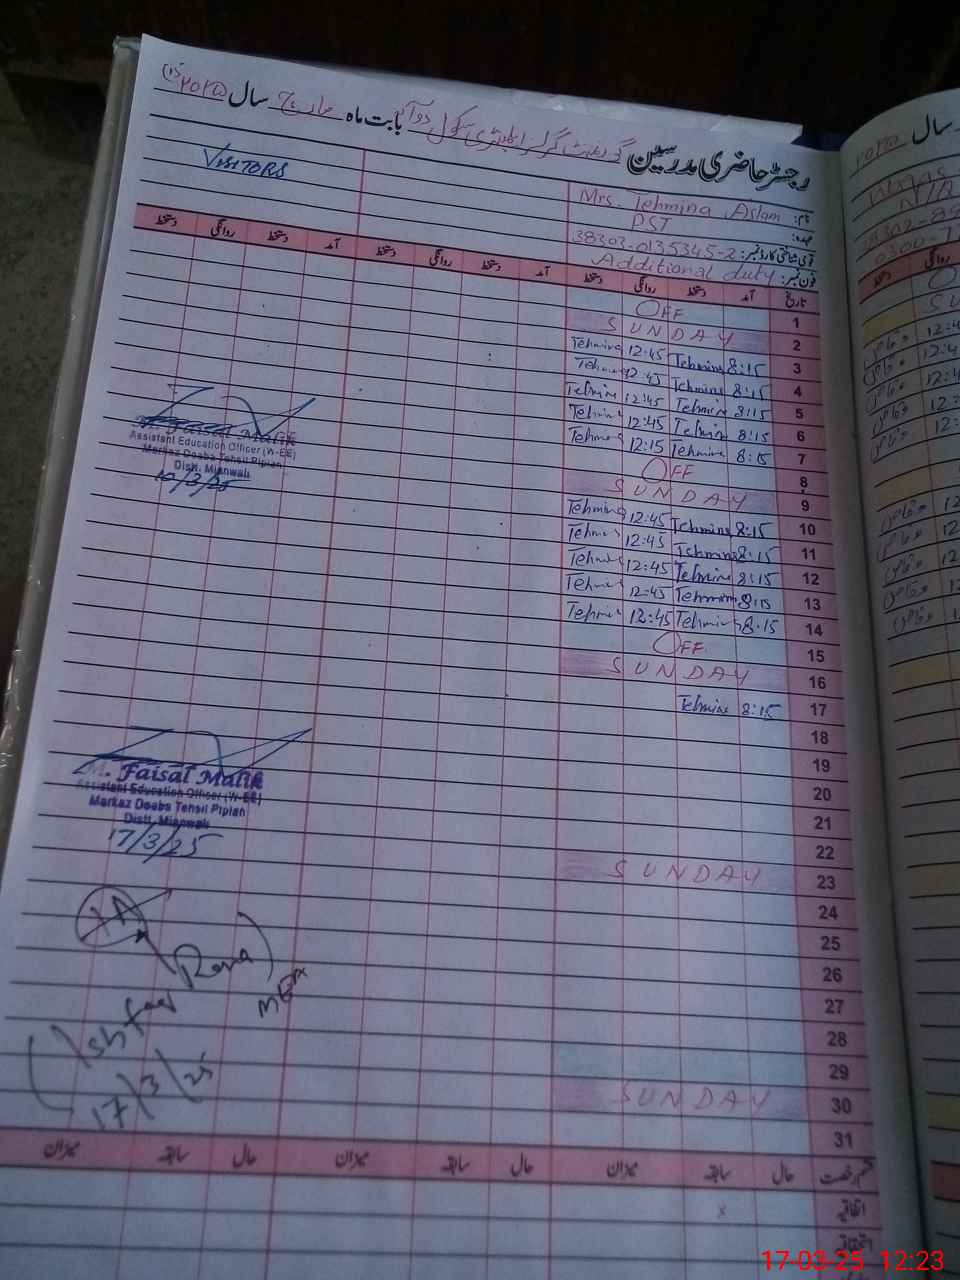 رجسٹر حاضری مدرسین گورنمنٹ گرلز ایلیمنٹری سکول دوآبہ بابت ماہ مارچ سال ۲۰۲۵
VISITORS
نام: Mrs. Tehmina Aslam
عہدہ: PST
قومی شناختی کارڈ نمبر: 38303-0135345-2
فون نمبر: Additional duty
تاریخ آمد دستخط روانگی دستخط آمد دستخط روانگی دستخط آمد دستخط روانگی دستخط
1 OFF
2 SUNDAY
3 8:15 Tehmina 12:45 Tehmina
4 8:15 Tehmina 12:45 Tehmina
5 8:15 Tehmina 12:45 Tehmina
6 8:15 Tehmina 12:45 Tehmina
7 8:15 Tehmina 12:15 Tehmina
8 OFF
9 SUNDAY
10 8:15 Tehmina 12:45 Tehmina
11 8:15 Tehmina 12:45 Tehmina
12 8:15 Tehmina 12:45 Tehmina
13 8:15 Tehmina 12:45 Tehmina
14 8:15 Tehmina 12:45 Tehmina
15 OFF
16 SUNDAY
17 8:15 Tehmina
18
19
20
21
22
23 SUNDAY
24
25
26
27
28
29
30 SUNDAY
31
M. Faisal Malik
Assistant Education Officer (W-EE)
Markaz Doaba Tehsil Piplan
Distt. Mianwali
10/3/25
M. Faisal Malik
Assistant Education Officer (W-EE)
Markaz Doaba Tehsil Piplan
Distt. Mianwali
17/3/25
(Ishfaq Rana)
MEA
17/3/25
قسم رخصت حال سابقہ میزان حال سابقہ میزان حال سابقہ میزان
اتفاقیہ x
سال ۲۰۲۵
N/A
روانگی دستخط
17-03-25 12:23